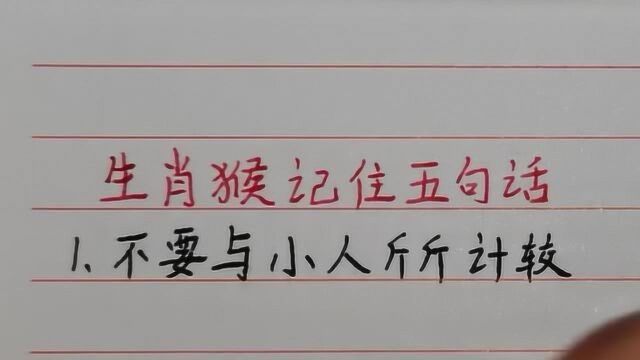 生肖猴记住五句话
1、不要与小人斤斤计较